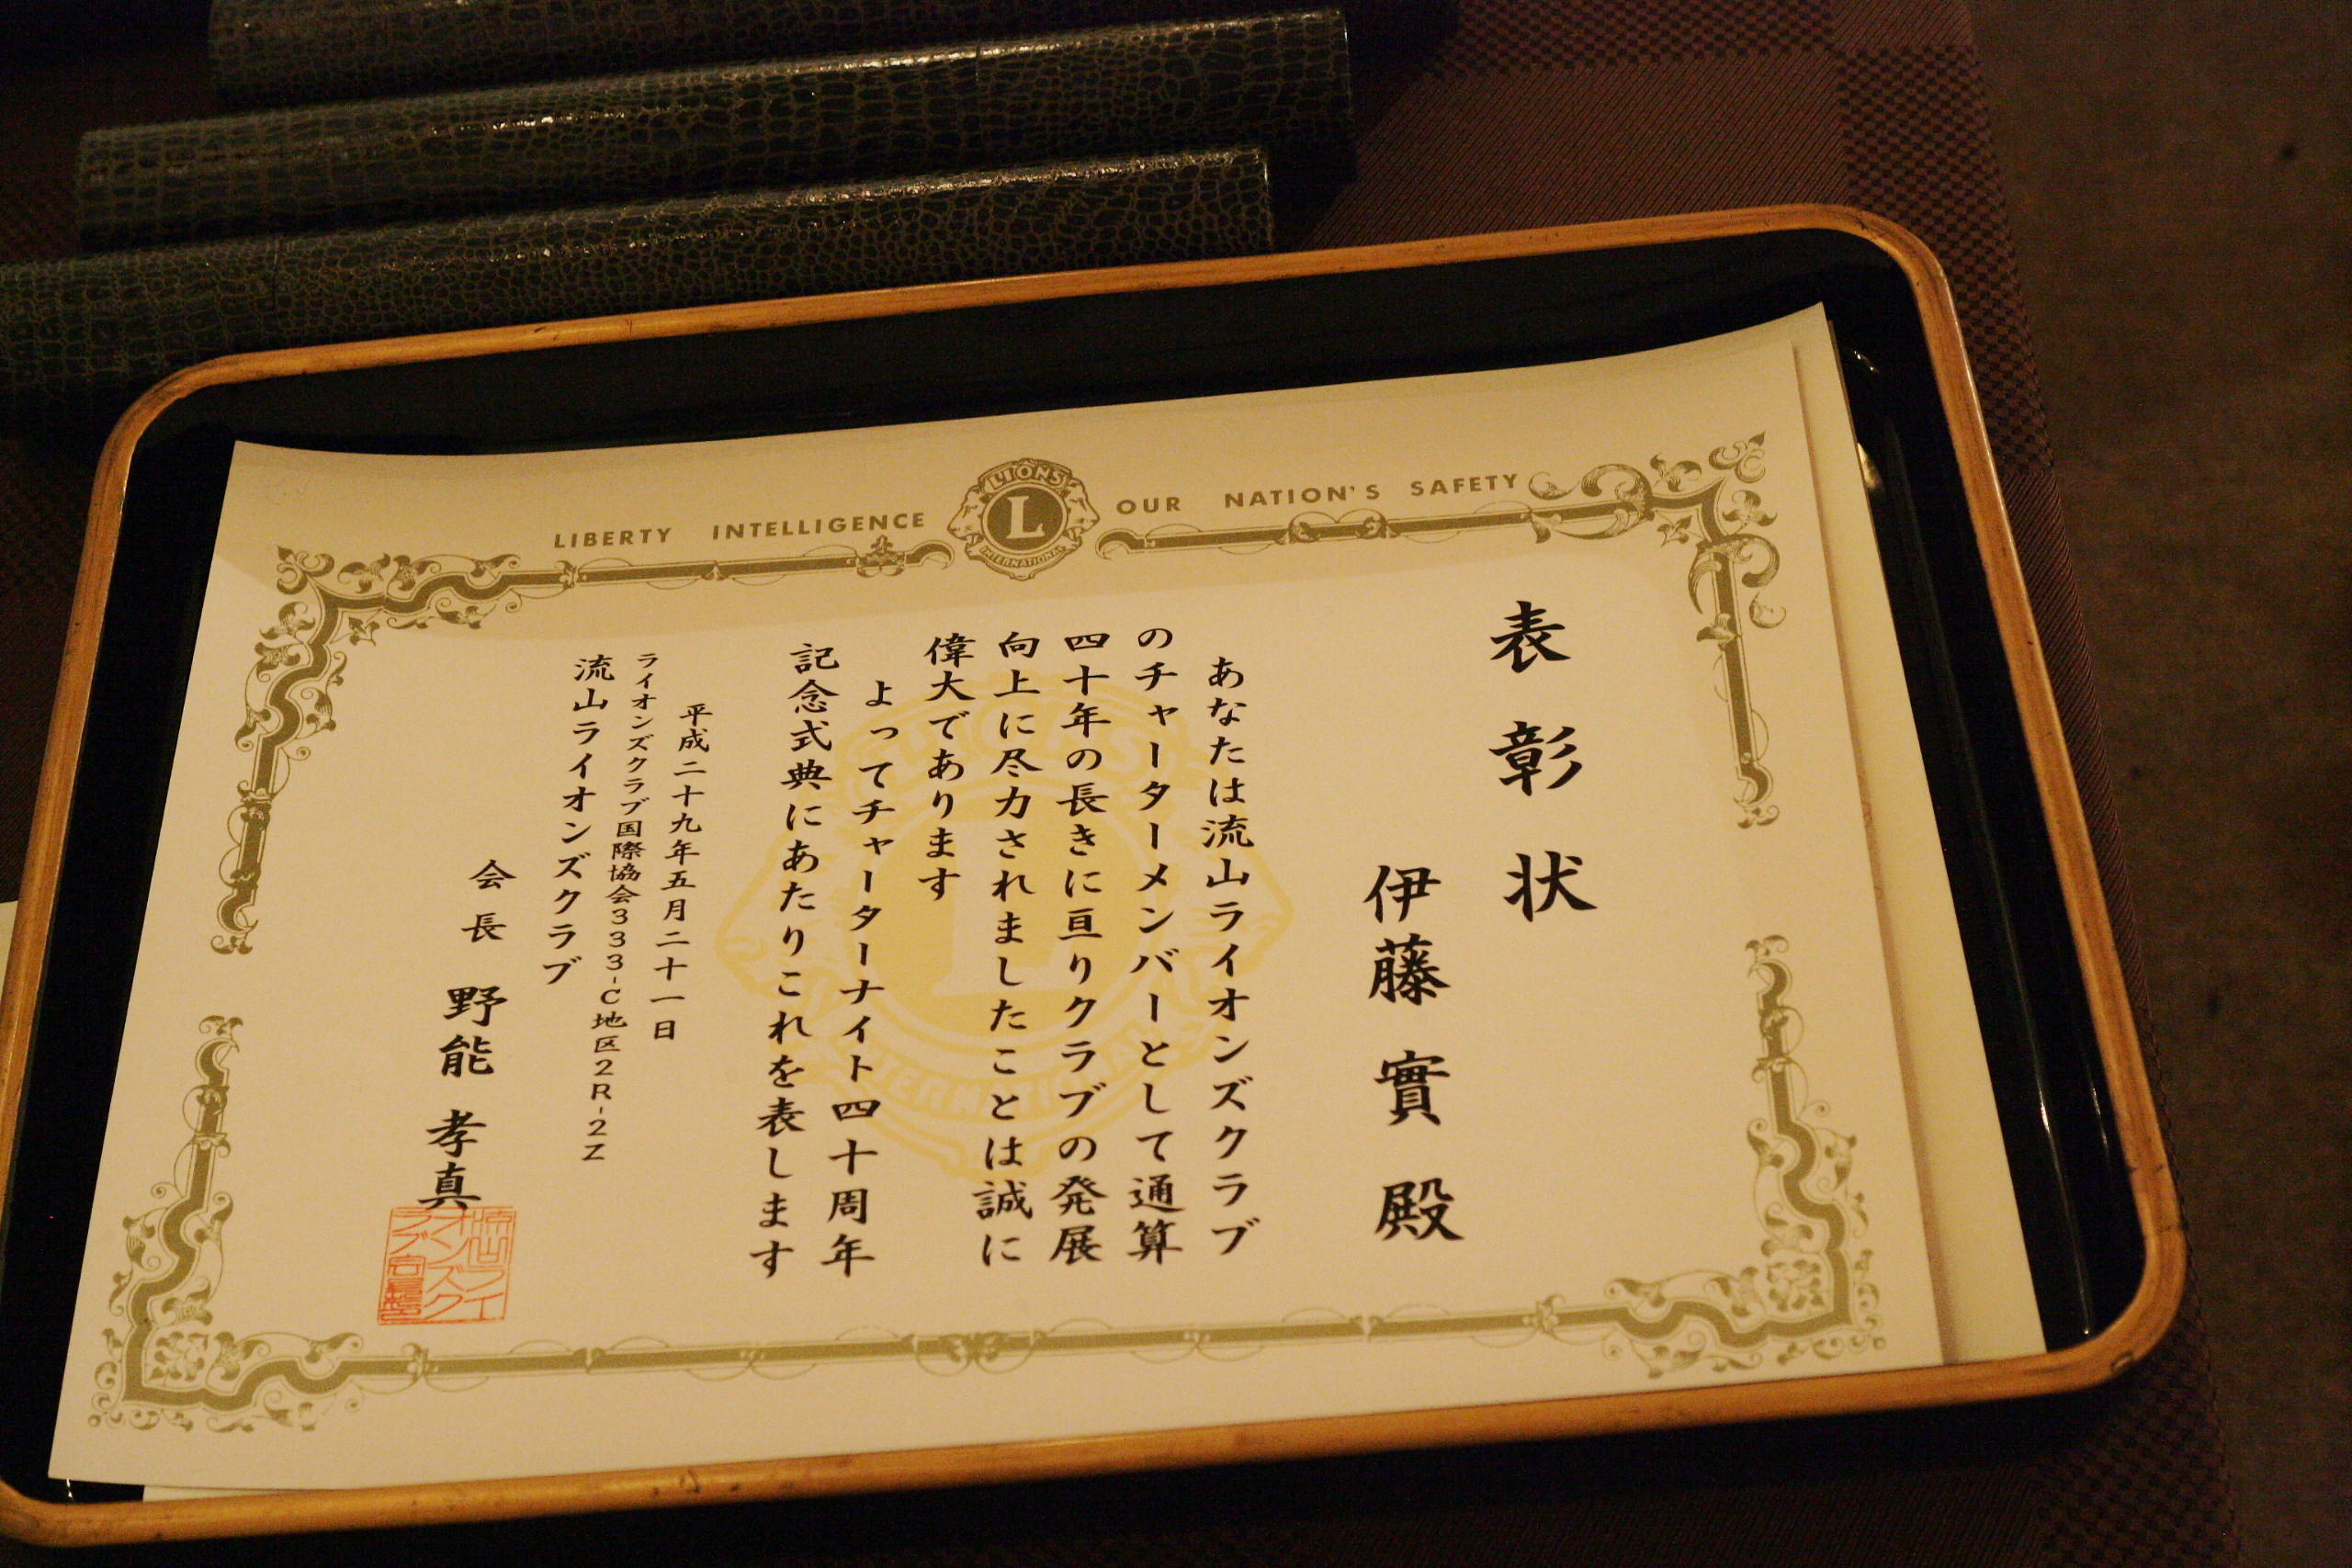 LIBERTY INTELLIGENCE OUR NATION'S SAFETY
LIONS
L
INTERNATIONAL
表彰状
伊藤 實 殿
あなたは流山ライオンズクラブ
のチャーターメンバーとして通算
四十年の長きに亘りクラブの発展
向上に尽力されましたことは誠に
偉大であります
よってチャーターナイト四十周年
記念式典にあたりこれを表します
平成二十九年五月二十一日
ライオンズクラブ国際協会333-C地区2R-2Z
流山ライオンズクラブ
会長 野能 孝真
流山ライ
オンズク
ラブ